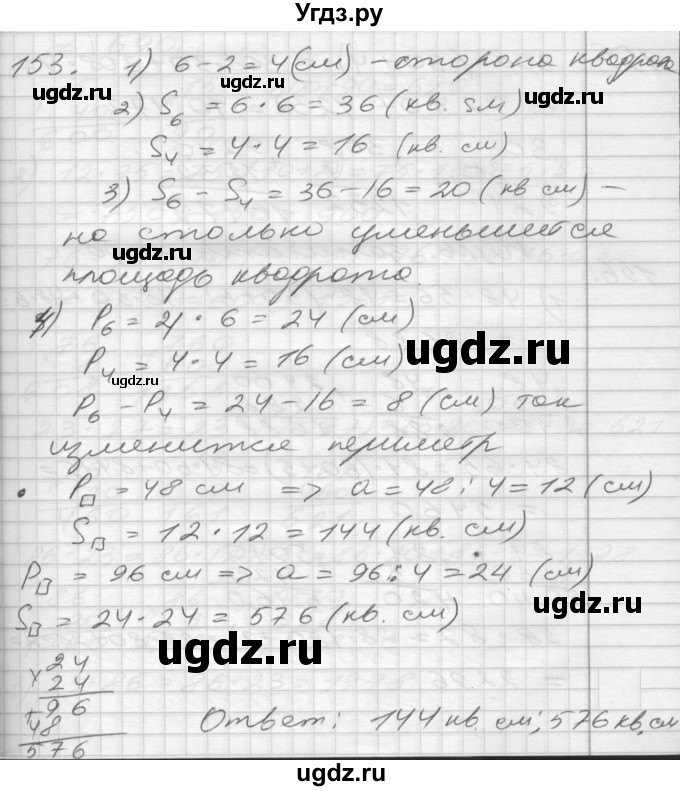 Угдз.ру
153. 1) 6-2=4(см) - сторона квадрата
ugdz.ru ugdz.ru
2) S₆ = 6·6 = 36 (кв. sм)
ugdz.ru
S₄ = 4·4 = 16 (кв. см)
3) S₆ - S₄ = 36-16 = 20 (кв см) -
на столько уменьшится
ugdz.ru
площадь квадрата.
4) P₆ = 4·6 = 24 (см)
P₄ = 4·4 = 16 (см)
ugdz.ru
ugdz.ru
P₆ - P₄ = 24-16 = 8 (см) так
изменится периметр
• P□ = 48 см => a = 48:4 = 12 (см)
S□ = 12·12 = 144 (кв. см)
P□ = 96 см => a = 96:4 = 24 (см)
ugdz.ru
S□ = 24·24 = 576 (кв. см)
ugdz.ru
× 24
24
96
+ 48
576
Ответ: 144 кв см; 576 кв.см
ugdz.ru